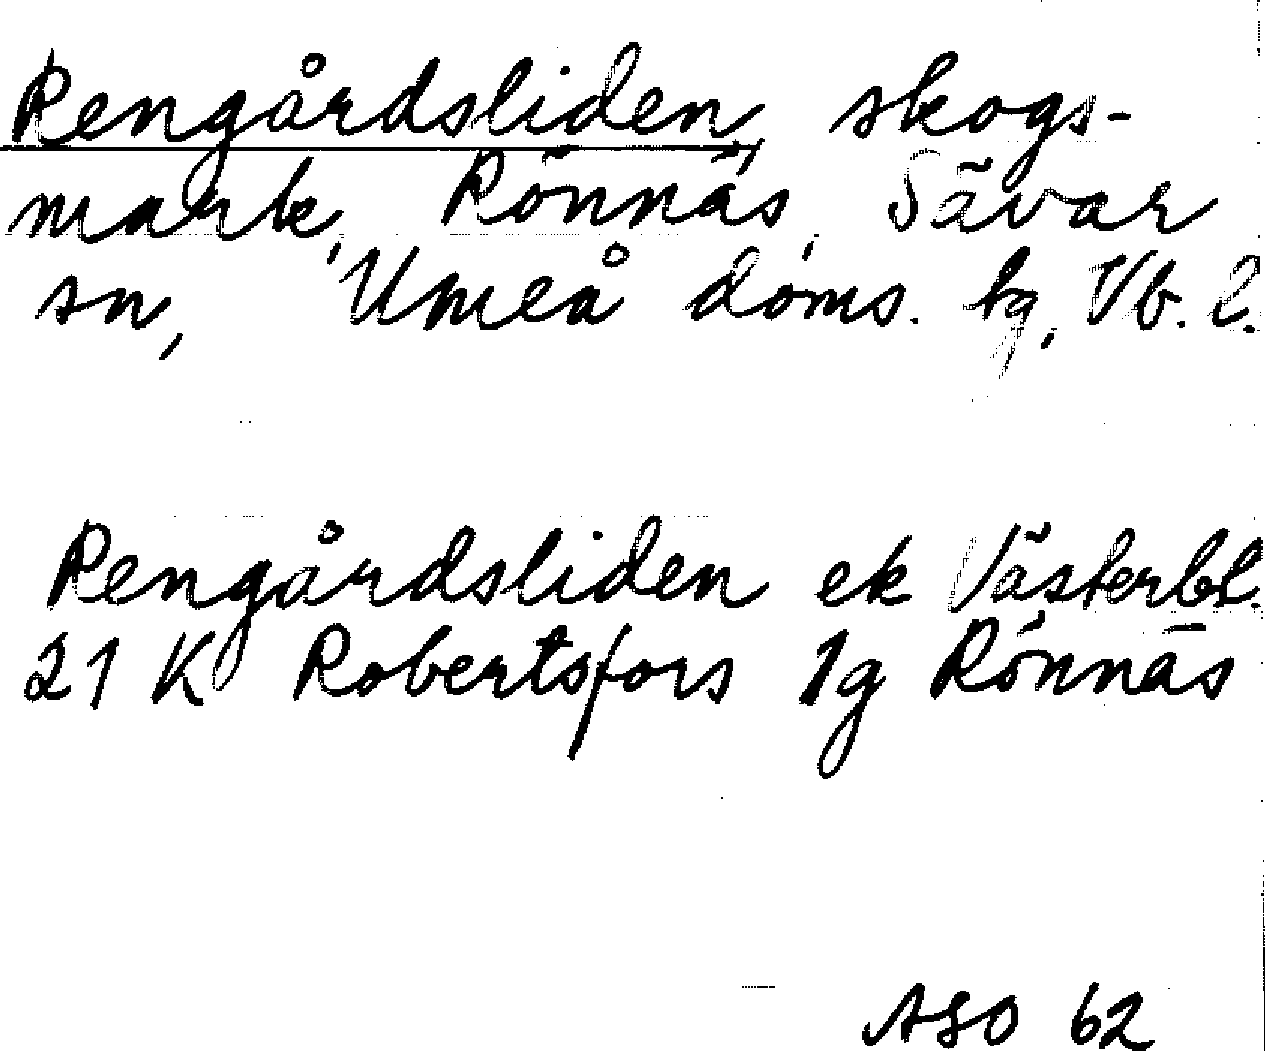 Rengårdsliden, skogs-
mark, Rönnäs, Sävar
sn, Umeå doms. tg, Vb. l.
Rengårdsliden ek Västerbl.
21 K Robertsfors 1g Rönnäs
ASO 62